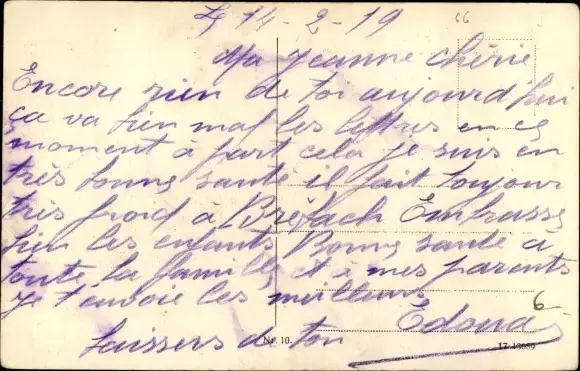 le 14-2-19
Ma Jeanne chérie
Encore rien de toi aujourd'hui
ça va bien mal les lettres en ce
moment à part cela je suis en
très bonne santé il fait toujour
très froid à Brebach Embrasse
bien les enfants Bonne santé à
toute la famille et à mes parents
Je t'envoie les meilleurs
6
baisers de ton Edouard
Nr. 10.